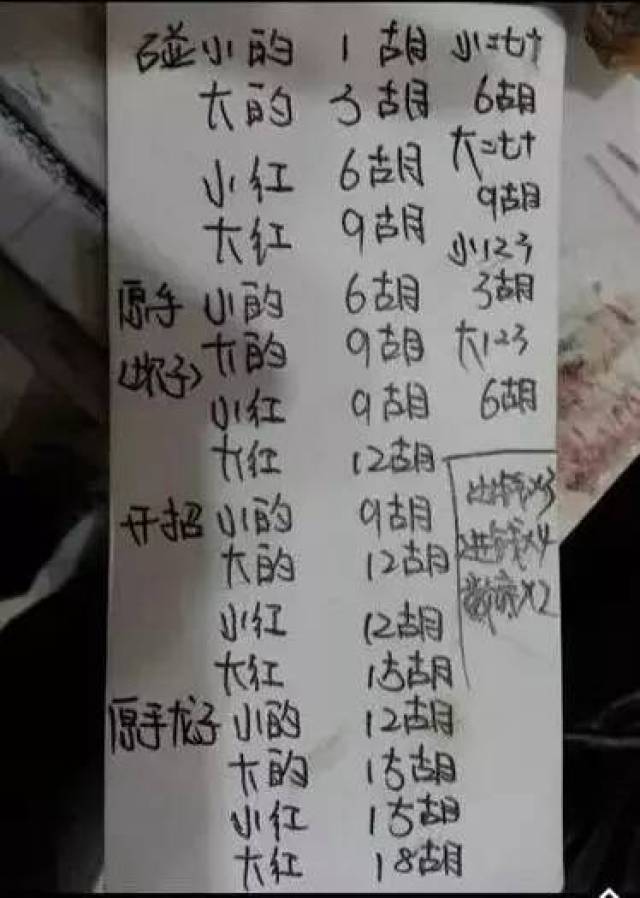 碰小的 1胡
大的 3胡
小红 6胡
大红 9胡
原手 小的 6胡
(坎子) 大的 9胡
小红 9胡
大红 12胡
开招 小的 9胡
大的 12胡
小红 12胡
大红 15胡
原手龙子 小的 12胡
大的 15胡
小红 15胡
大红 18胡
小二七十
6胡
大二七十
9胡
小123
3胡
大123
6胡
出钱X3
进钱X4
X2